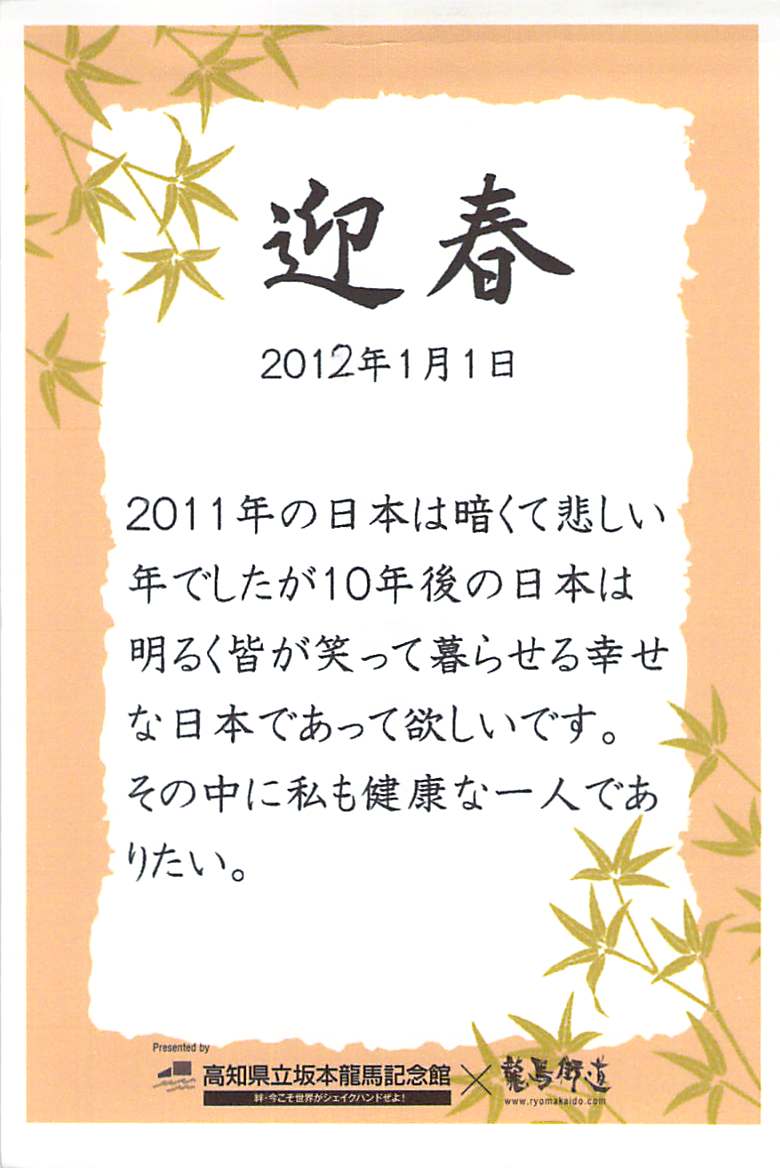 迎春
2012年1月1日
2011年の日本は暗くて悲しい
年でしたが10年後の日本は
明るく皆が笑って暮らせる幸せ
な日本であって欲しいです。
その中に私も健康な一人であ
りたい。
Presented by
高知県立坂本龍馬記念館×龍馬街道
絆・今こそ世界がシェイクハンドぜよ！
www.ryomakaido.com